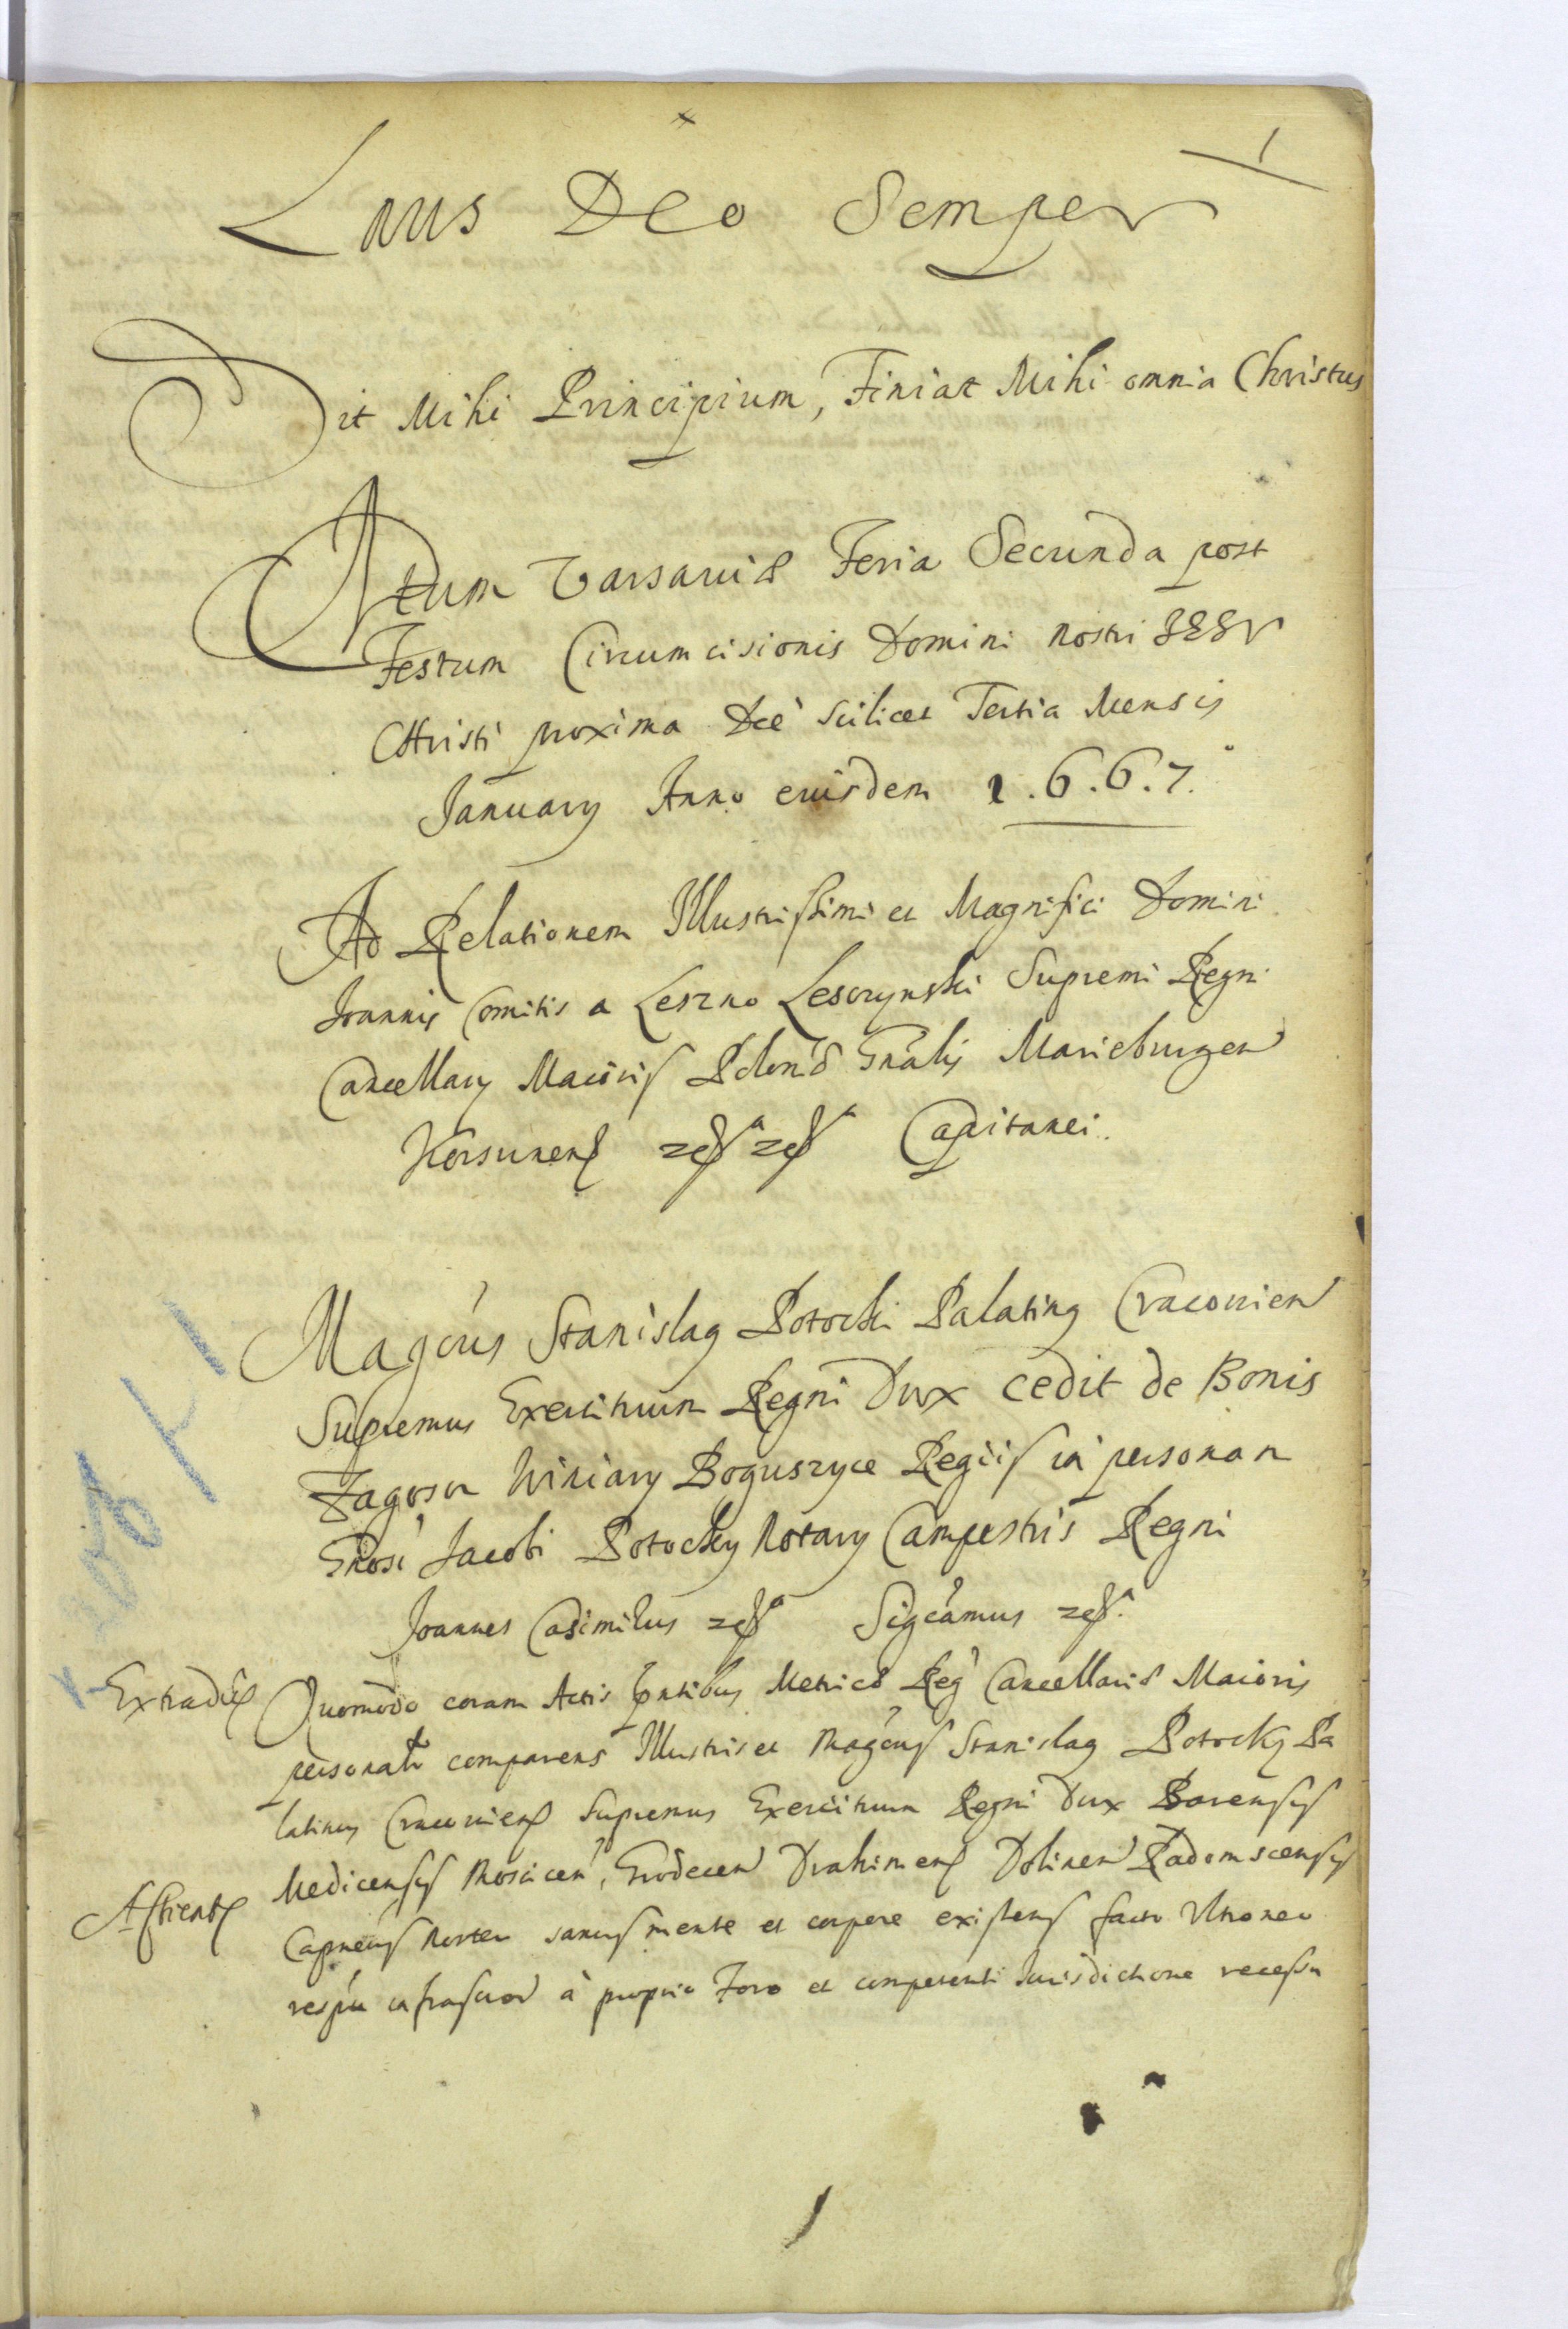 1
Laus Deo Semper
Dit Mihi Principium, Finiat Mihi omnia Christus
Actum Varsaviæ Feria Secunda post
Festum Circumcisionis Domini nostri IESV
CHristi proxima die scilicet Tertia Mensis
Ianuarij Anno eiusdem 1.6.6.7.
Ad Relationem Illustrissimi et Magnifici Domini
Ioannis Comitis a Leszno Lesczynski Supremi Regni
Cancellarij Maioris Polon Gnalis Marieburgen
Korsunen etc etc Capitanei.
Magcus Stanislaus Potocki Palatinus Cracovien
Supremus Exercituum Regni Dux cedit de Bonis
Winiary Boguszyce Regiis in personam
Gnosi Jacobi Potocky Notarij Campestris Regni
Joannes Casimirus etc Sigcamus etc.
Extradit Quomodo coram Actis pntibus Metrices Reg Cancellariæ Maioris
personalr comparens Illustris et Magcus Stanislaus Potocky Pa
latinus Cracovien Supremus Exercituum Regni Dux Barensis
Medicensis Moscicen, Grodecen Drahimen Dolinen Radomscensis
Capneus Noster sanus mente et corpore existens facto Vltroneo
respu infrascror à proprio Foro et competenti Iurisdictione recessu
1